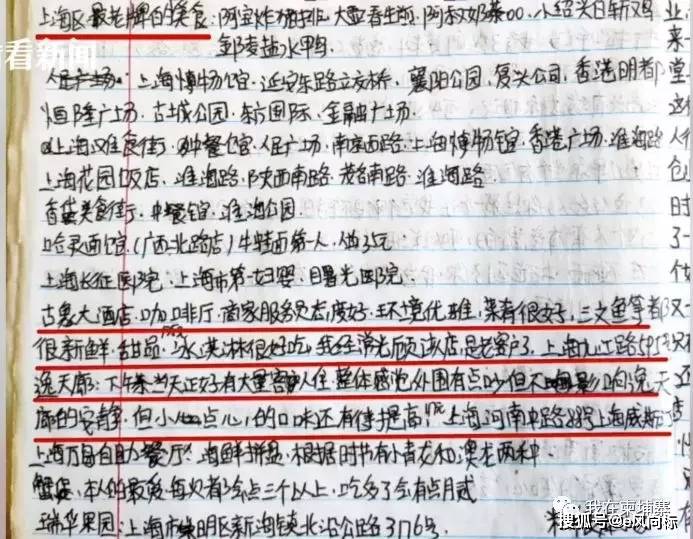 看看新闻
上海区最老牌的美食:阿宝炸猪排.大壶春生煎.阿 奶茶00.小绍兴白斩鸡
盐水鸭
人民广场.上海博物馆.延安东路立交桥.襄阳公园.复兴公司.香港明都
恒隆广场.古城公园.东方国际.金融广场.
上海 美食街. 中餐馆.人民广场.南京西路.上海博物馆.香港广场.淮海路
上海花园饭店.淮海路.陕西南路.茂名南路.淮海路.
美食街.中餐馆.淮海公园.
哈灵面馆.(广西北路店)牛 面第一人.
上海长征医院.上海市第一妇婴.曙光医院.
古象大酒店.咖啡厅.商家服务员态度好.环境优雅.菜肴很好.三文鱼等都
很新鲜.甜品.冰淇淋很好吃.我经常光顾该店.是老客户了.上海九江路595
逸天廊:下午茶.当天正好有大量客人入住.整体感觉外围有点吵但不影响逸天
廊的安静.但小点心.的口味还有待提高.上海河南中路 上海威斯
上海万 自助餐厅:海鲜拼盘.根据时节有小青龙和澳龙两种
蟹 .本人的最爱.每次都会点三个以上.吃多了会有点 咸
瑞华果园:上海市崇明区新海镇北沿公路3176号.
我在柬埔寨
搜狐号@b风向标